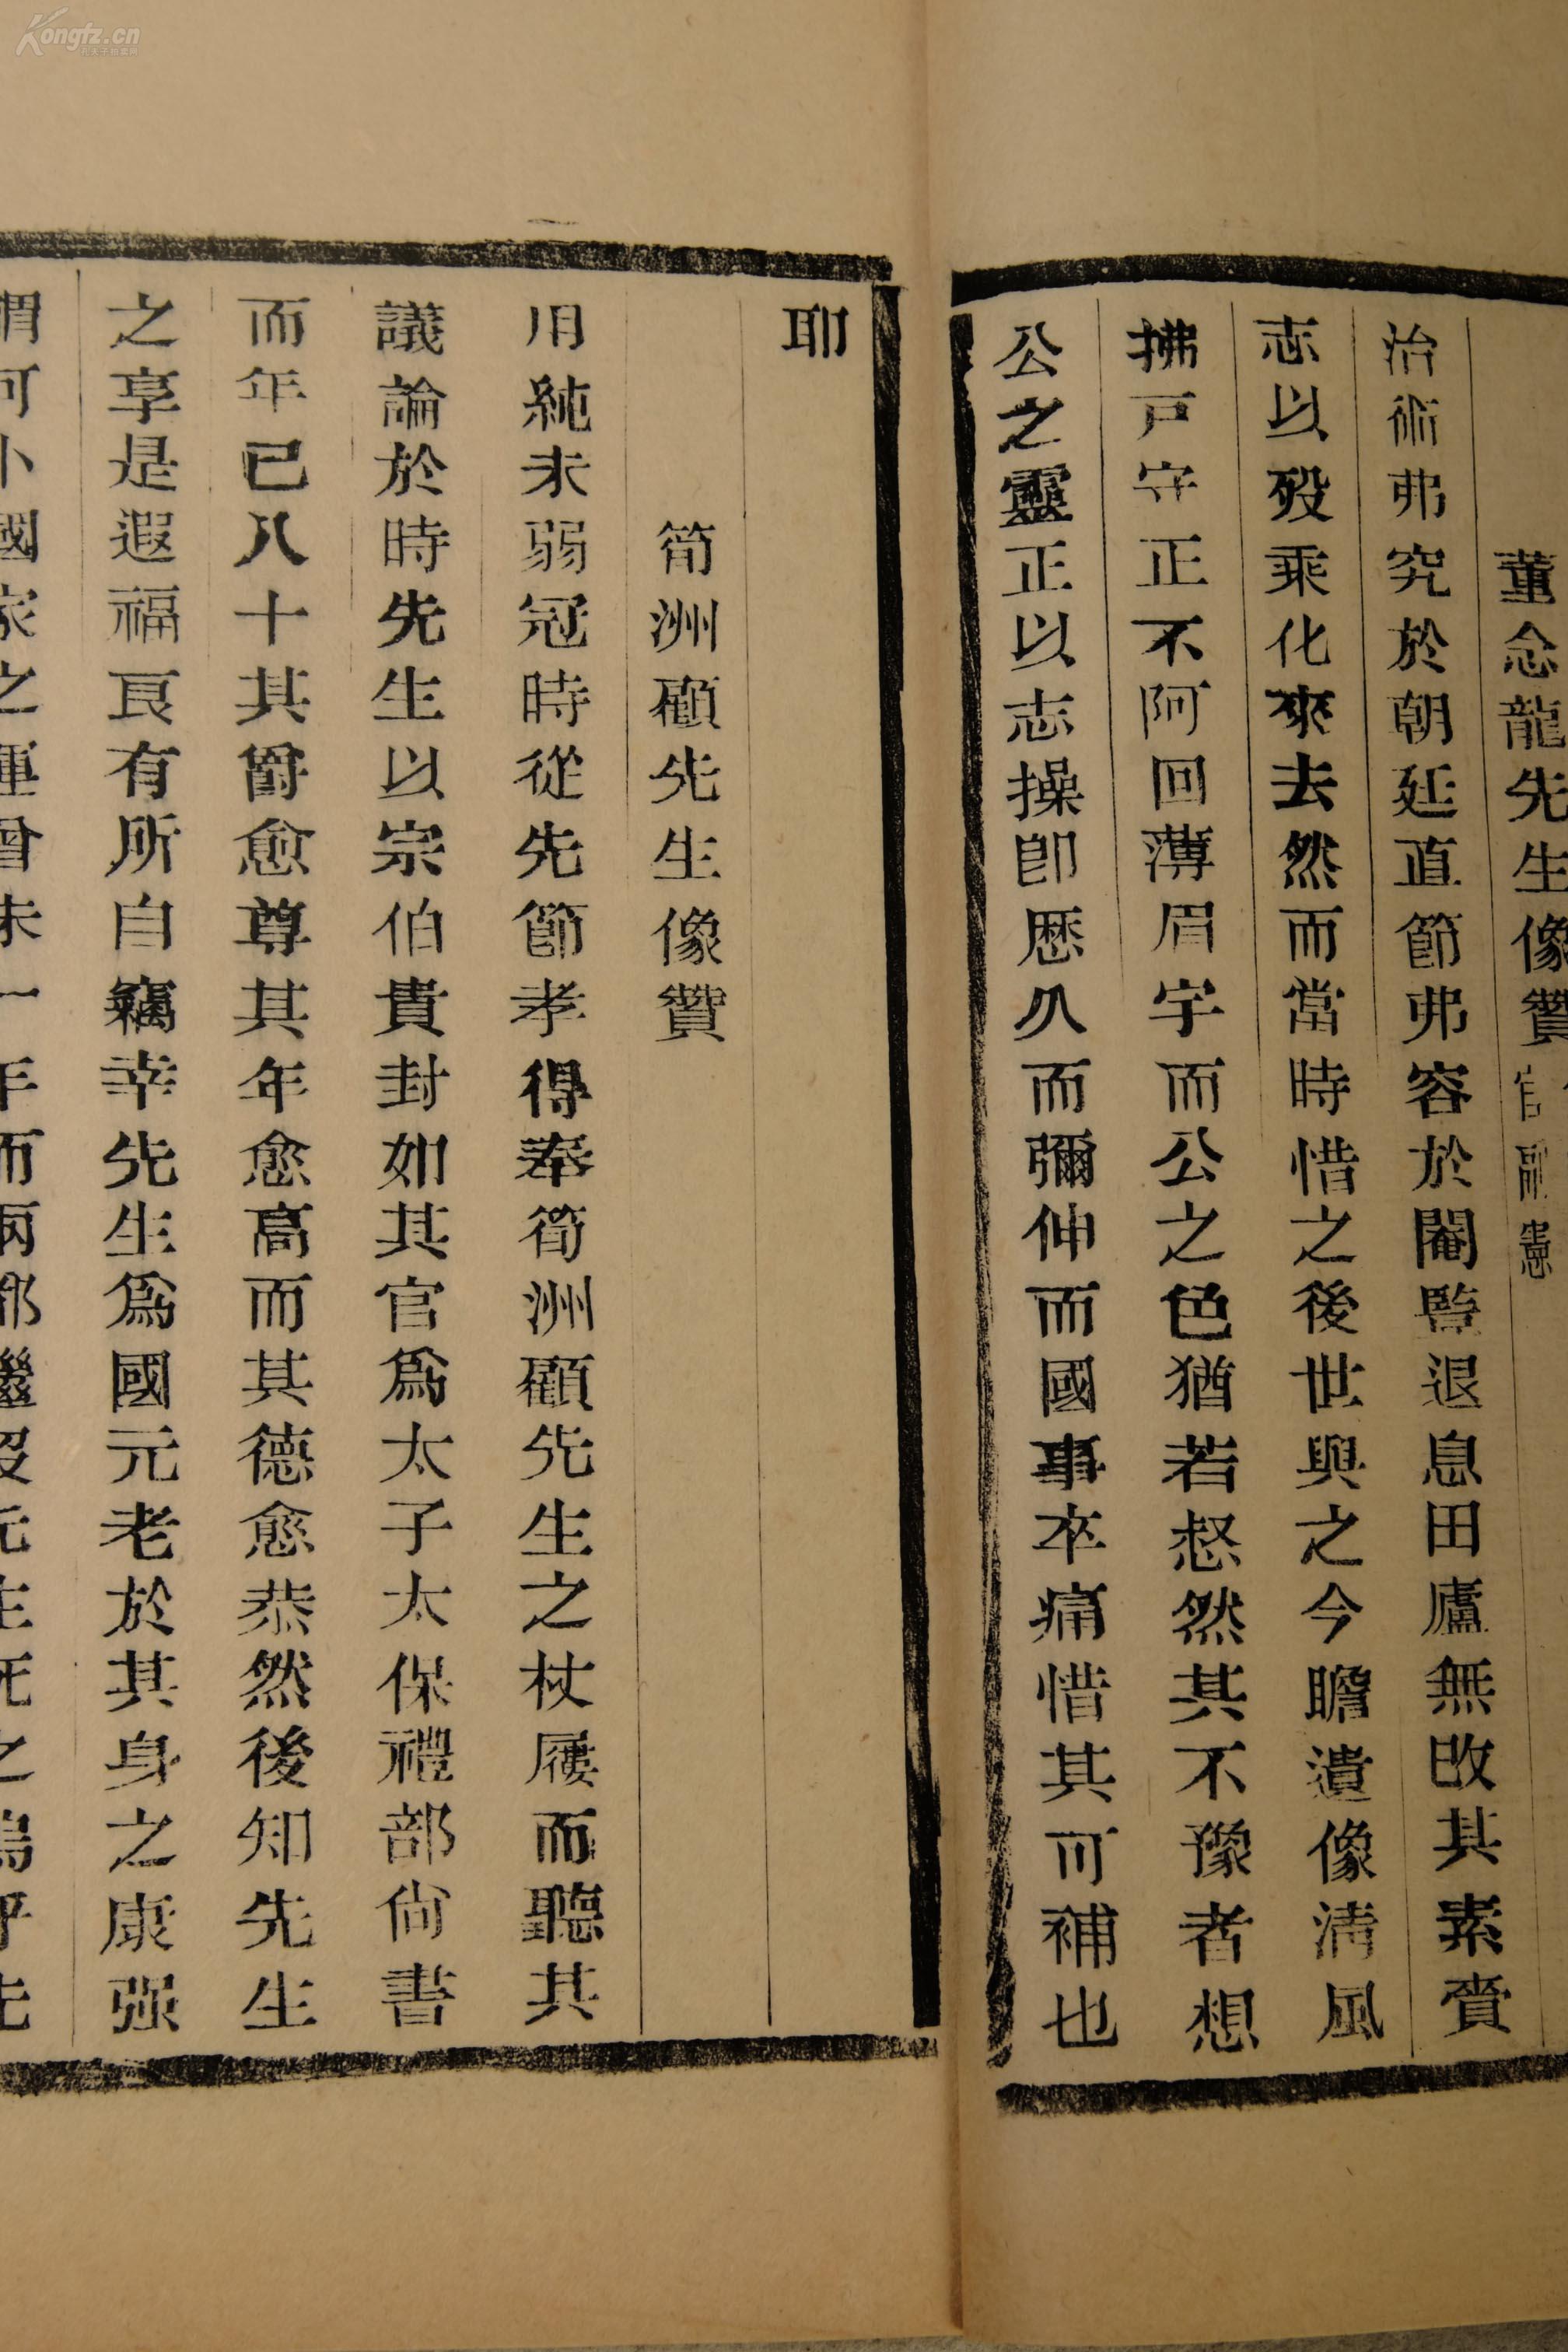 董念龍先生像贊官副憲
治術弗究於朝廷直節弗容於閹豎退息田廬無改其素賫
志以歿乘化來去然而當時惜之後世與之今瞻遺像清風
拂戸守正不阿回薄眉宇而公之色猶若惄然其不豫者想
公之靈正以志操卽歷久而彌伸而國事卒痛惜其可補也
耶
筍洲顧先生像贊
用純未弱冠時從先節孝得奉筍洲顧先生之杖屨而聽其
議論於時先生以宗伯貴封如其官爲太子太保禮部尙書
而年已八十其爵愈尊其年愈高而其德愈恭然後知先生
之享是遐福良有所自竊幸先生爲國元老於其身之康强
國家之運曾未一年而兩都繼沒先生死之嗚呼先
Kongfz.cn